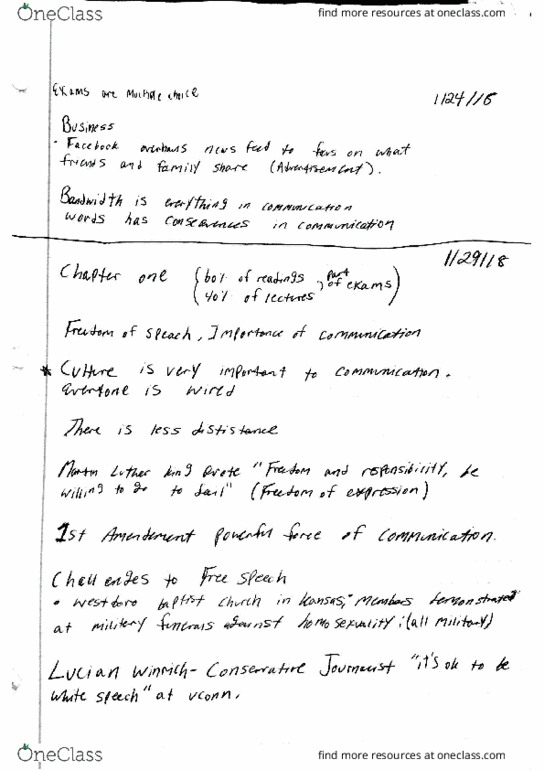 OneClass
find more resources at oneclass.com
Exams are Multiple choice
1/24/18
Business
• Facebook overhauls news feed to focus on what
friends and family share (Advertisement).
Bandwidth is everything in communication
words has consequences in communication
1/29/18
Chapter one {60% of readings, part of exams}
{40% of lectures
Freedom of speach, Importance of communication
* Culture is very important to communication.
everyone is wired
There is less dististance
Martin Luther king Quote "Freedom and responsibility, be
willing to go to Jail" (Freedom of expression)
1st Amendement powerful force of communication.
Challenges to Free speech
• westboro baptist church in kansas, members demonstrated
at military funerals against homosexuality: (all military)
Lucian Winrich- Conservative Journalist "it's ok to be
white speech" at uconn.
OneClass
find more resources at oneclass.com